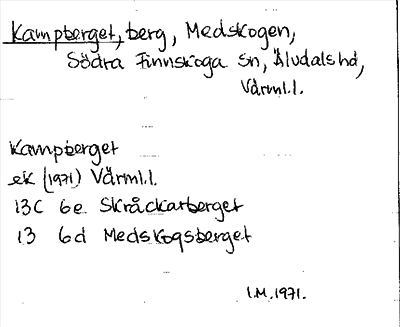 Kampberget, berg, Medskogen,
Södra Finnskoga sn, Älvdals hd,
Värml.l.
Kampberget
ek (1971) Värml.l.
13C 6e Skråckarberget
13 6d Medskogsberget
I.M. 1971.